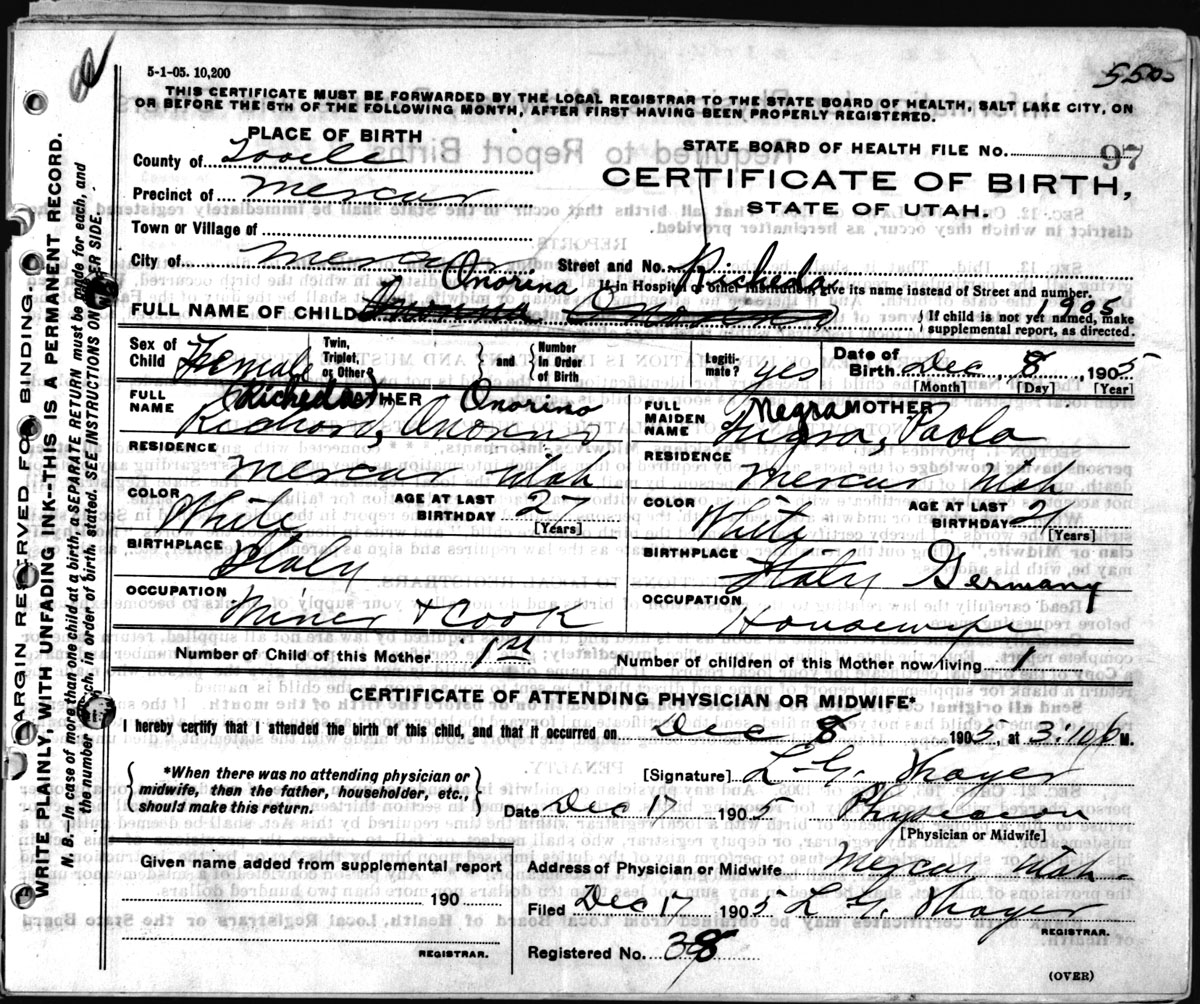 5-1-05. 10,200
5502
THIS CERTIFICATE MUST BE FORWARDED BY THE LOCAL REGISTRAR TO THE STATE BOARD OF HEALTH, SALT LAKE CITY, ON
OR BEFORE THE 5TH OF THE FOLLOWING MONTH, AFTER FIRST HAVING BEEN PROPERLY REGISTERED.
MARGIN RESERVED FOR BINDING.
WRITE PLAINLY, WITH UNFADING INK--THIS IS A PERMANENT RECORD.
N. B.—In case of more than one child at a birth, a SEPARATE RETURN must be made for each, and
the number of each, in order of birth, stated. SEE INSTRUCTIONS ON OTHER SIDE.
PLACE OF BIRTH
STATE BOARD OF HEALTH FILE NO. 97
County of Tooele
CERTIFICATE OF BIRTH,
Precinct of Mercur
STATE OF UTAH.
Town or Village of
City of Mercur
Street and No.
If in Hospital or other institutions, give its name instead of Street and number.
Onorina Richeda
FULL NAME OF CHILD
1905
If child is not yet named, make
supplemental report, as directed.
Sex of Child Female
Twin, Triplet, or Other?
and
Number in Order of Birth
Legitimate? yes
Date of Birth Dec 8, 1905
[Month] [Day] [Year]
FATHER
FULL NAME
Richeda Onorino
Onoreno
MOTHER
FULL MAIDEN NAME
Negra
Nigra, Paola
RESIDENCE
Mercur Utah
RESIDENCE
Mercur Utah
COLOR
White
AGE AT LAST BIRTHDAY 27
[Years]
COLOR
White
AGE AT LAST BIRTHDAY
[Years]
BIRTHPLACE
Italy
BIRTHPLACE
Italy Germany
OCCUPATION
Miner & Cook
OCCUPATION
Housewife
Number of Child of this Mother 1st
Number of children of this Mother now living 1
CERTIFICATE OF ATTENDING PHYSICIAN OR MIDWIFE*
I hereby certify that I attended the birth of this child, and that it occurred on Dec 8 1905, at 3:10 P M.
*When there was no attending physician or
midwife, then the father, householder, etc.,
should make this return.
[Signature] L. G. Thayer
Date Dec 17 1905 Physician
[Physician or Midwife]
Given name added from supplemental report
190
REGISTRAR.
Address of Physician or Midwife Mercur, Utah
Filed Dec 17 1905 L. G. Thayer
REGISTRAR.
Registered No. 38
(OVER)